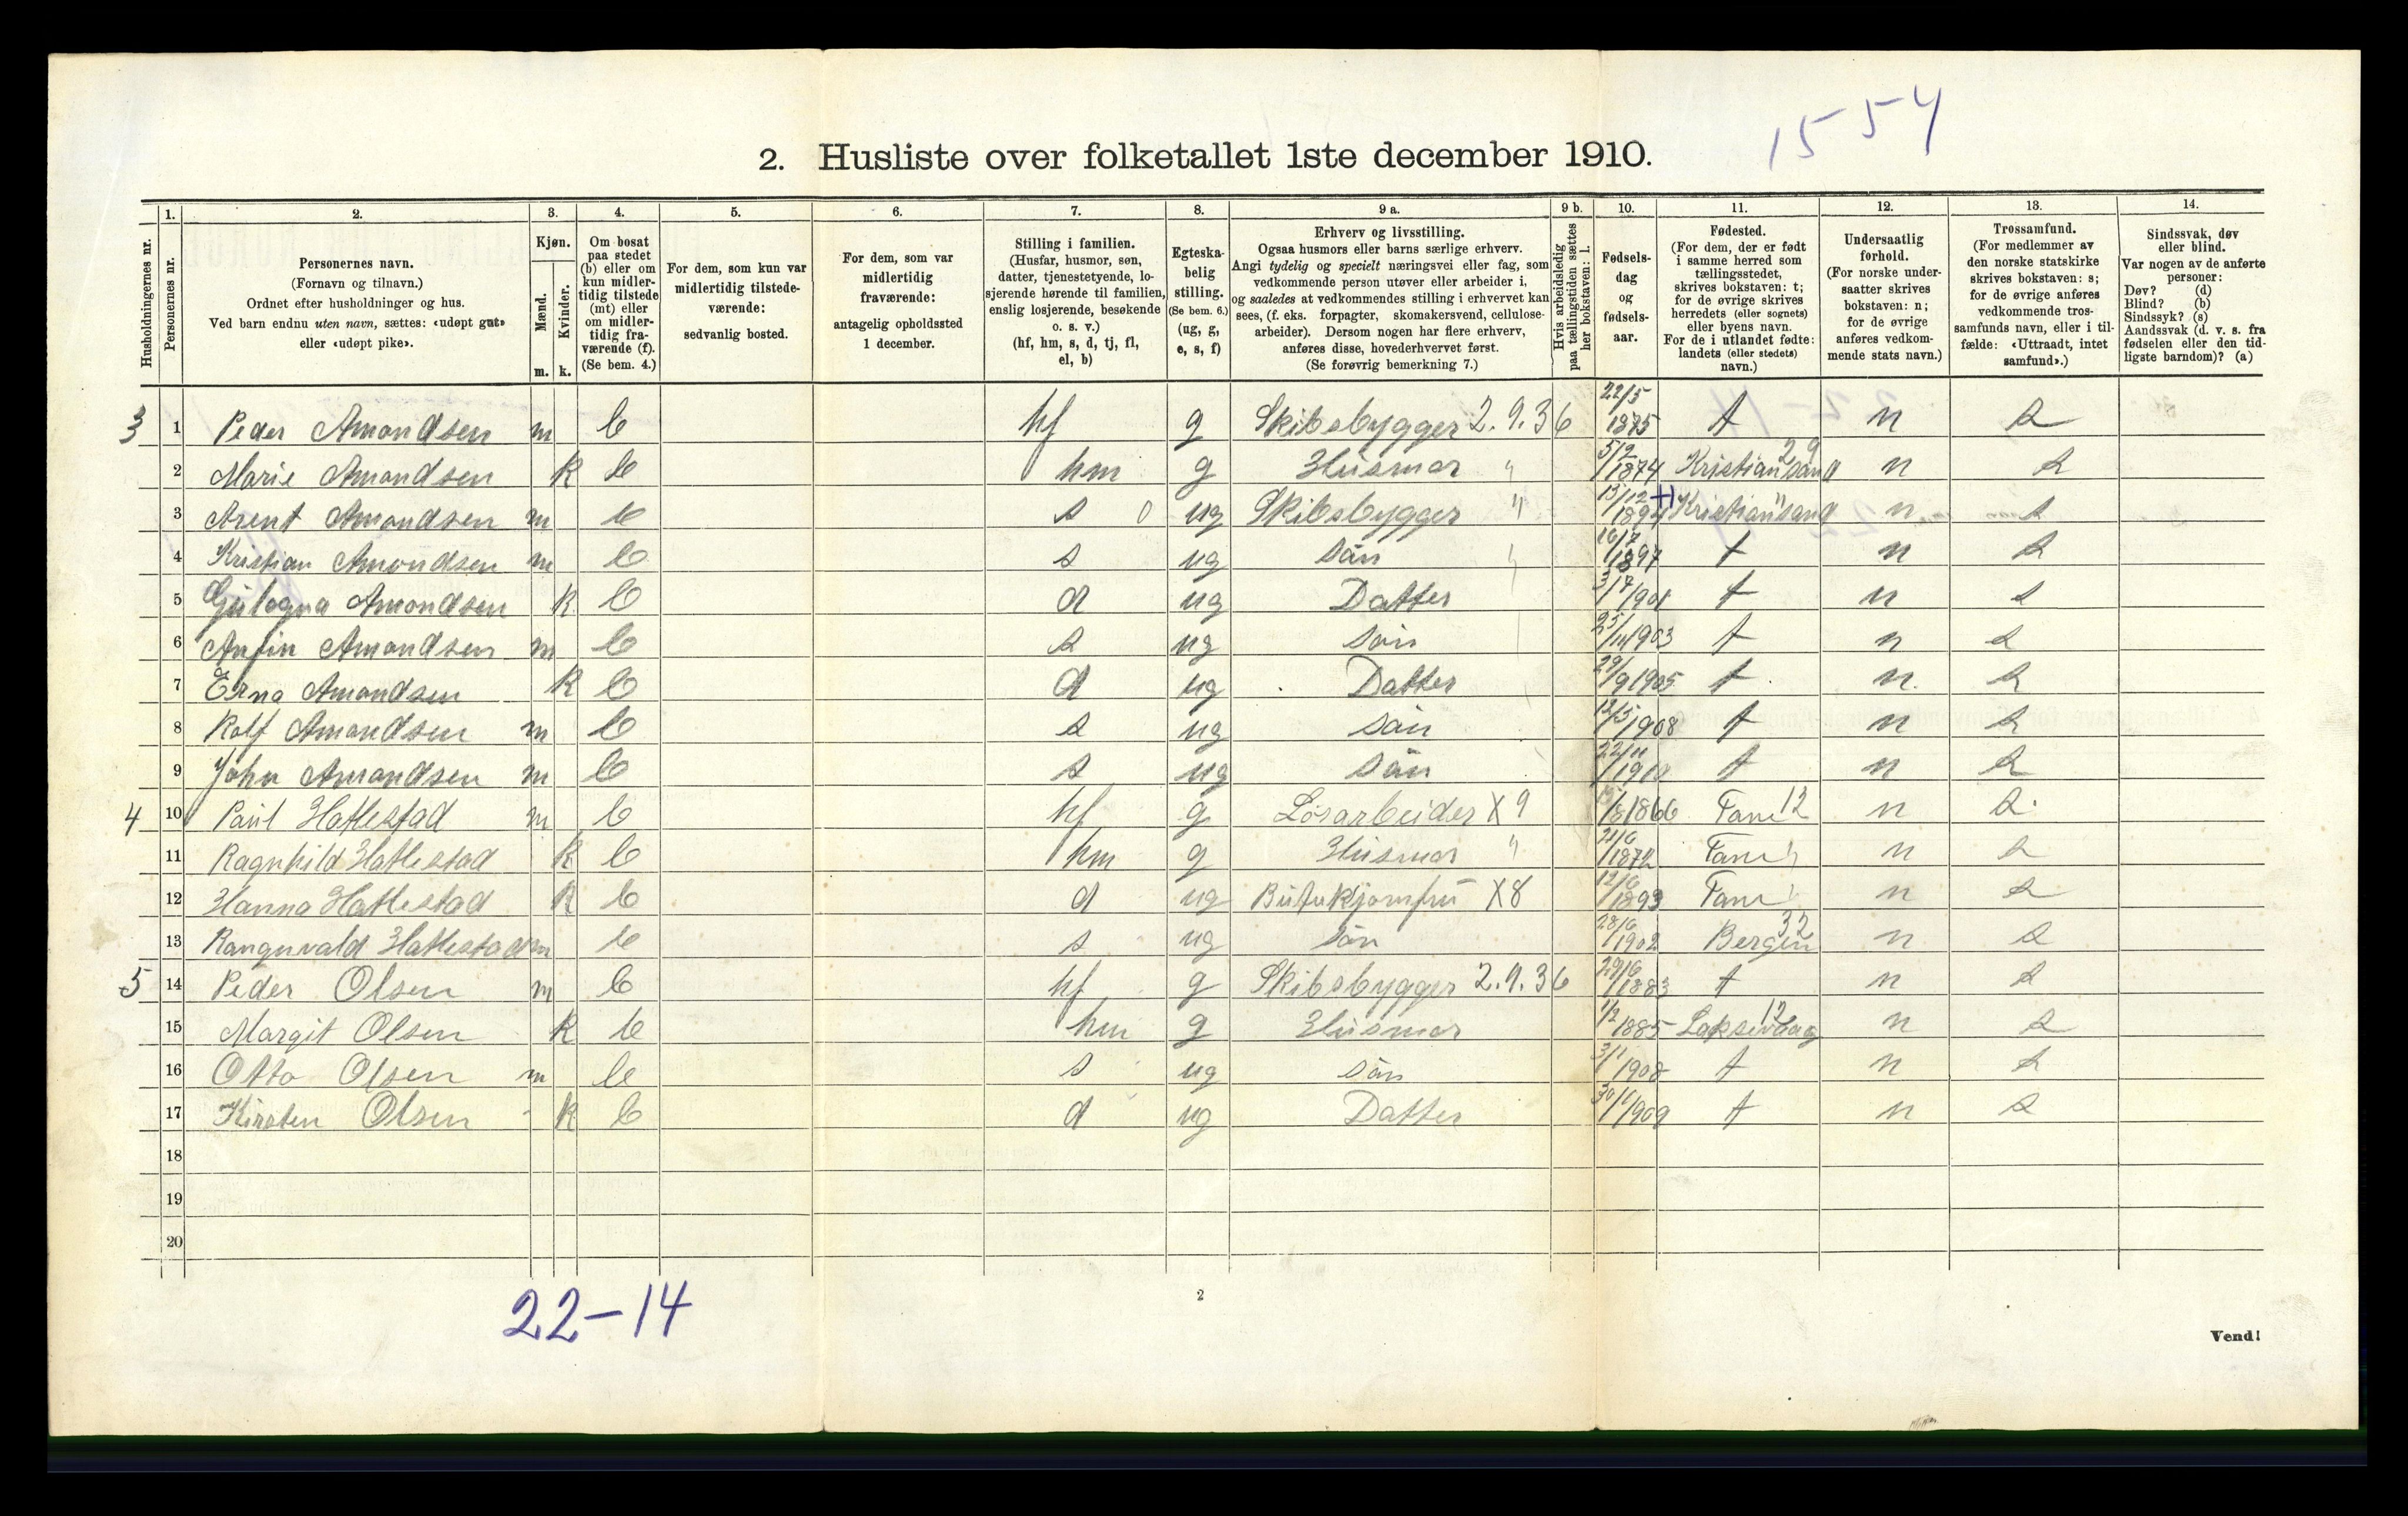 1554
2. Husliste over folketallet 1ste december 1910.
Husholdningernes nr.
1. Personernes nr.
2. Personernes navn.
(Fornavn og tilnavn.)
Ordnet efter husholdninger og hus.
Ved barn endnu uten navn, sættes: «udøpt gut»
eller «udøpt pike».
3. Kjøn.
Mænd. m.
Kvinder. k.
4. Om bosat
paa stedet
(b) eller om
kun midler-
tidig tilstede
(mt) eller
om midler-
tidig fra-
værende (f).
(Se bem. 4.)
5. For dem, som kun var
midlertidig tilstede-
værende:
sedvanlig bosted.
6. For dem, som var
midlertidig
fraværende:
antagelig opholdssted
1 december.
7. Stilling i familien.
(Husfar, husmor, søn,
datter, tjenestetyende, lo-
sjerende hørende til familien,
enslig losjerende, besøkende
o. s. v.)
(hf, hm, s, d, tj, fl,
el, b)
8. Egteska-
belig
stilling.
(Se bem. 6.)
(ug, g,
e, s, f)
9 a. Erhverv og livsstilling.
Ogsaa husmors eller barns særlige erhverv.
Angi tydelig og specielt næringsvei eller fag, som
vedkommende person utøver eller arbeider i,
og saaledes at vedkommendes stilling i erhvervet kan
sees, (f. eks. forpagter, skomakersvend, cellulose-
arbeider). Dersom nogen har flere erhverv,
anføres disse, hovederhvervet først.
(Se forøvrig bemerkning 7.)
9 b. Hvis arbeidsledig
paa tællingstiden sættes
her bokstaven: l.
10. Fødsels-
dag
og
fødsels-
aar.
11. Fødested.
(For dem, der er født
i samme herred som
tællingsstedet,
skrives bokstaven: t;
for de øvrige skrives
herredets (eller sognets)
eller byens navn.
For de i utlandet fødte:
landets (eller stedets)
navn.)
12. Undersaatlig
forhold.
(For norske under-
saatter skrives
bokstaven: n;
for de øvrige
anføres vedkom-
mende stats navn.)
13. Trossamfund.
(For medlemmer av
den norske statskirke
skrives bokstaven: s;
for de øvrige anføres
vedkommende tros-
samfunds navn, eller i til-
fælde: «Uttraadt, intet
samfund».)
14. Sindssvak, døv
eller blind.
Var nogen av de anførte
personer:
Døv? (d)
Blind? (b)
Sindssyk? (s)
Aandssvak (d. v. s. fra
fødselen eller den tid-
ligste barndom)? (a)
3 1 Peder Amondsen m b hf g Skibsbygger 2.9.36 22/5 1875 t n s
2 Marie Amondsen k b hm g Husmor " 5/2 1874 Kristiansand 29 n s
3 Arent Amondsen m b s 0 ug Skibsbygger " 13/12 1894 Kristiansand " n s
4 Kristian Amondsen m b s ug sön 16/7 1897 t n s
5 Amondsen k b d ug Datter 3/7 1901 t n s
6 Anfin Amondsen m b s ug sön 25/11 1903 t n s
7 Erna Amondsen k b d ug Datter 29/9 1905 t n s
8 Rolf Amondsen m b s ug sön 12/5 1908 t n s
9 John Amondsen m b s ug sön 22/11 1910 t n s
4 10 Paul Hatlestad m b hf g Løsarbeider X 9 1866 Fane 12 n s
11 Ragnhild Hatlestad k b hm g Husmor " 21/6 1872 Fane " n s
12 Hanna Hatlestad k b d ug Butukjomfru X8 12/6 1893 Fane " n s
13 Rangnvald Hatlestad m b s ug sön 28/6 1902 Bergen 32 n s
5 14 Peder Olsen m b hf g Skibsbygger 2.9.36 29/6 1883 t n s
15 Margit Olsen k b hm g Husmor 1/2 1885 Laksevaag 12 n s
16 Otto Olsen m b s ug sön 3/1 1908 t n s
17 Kirsten Olsen k b d ug Datter 30/11 1909 t n s
18
19
20
22-14
2
Vend!